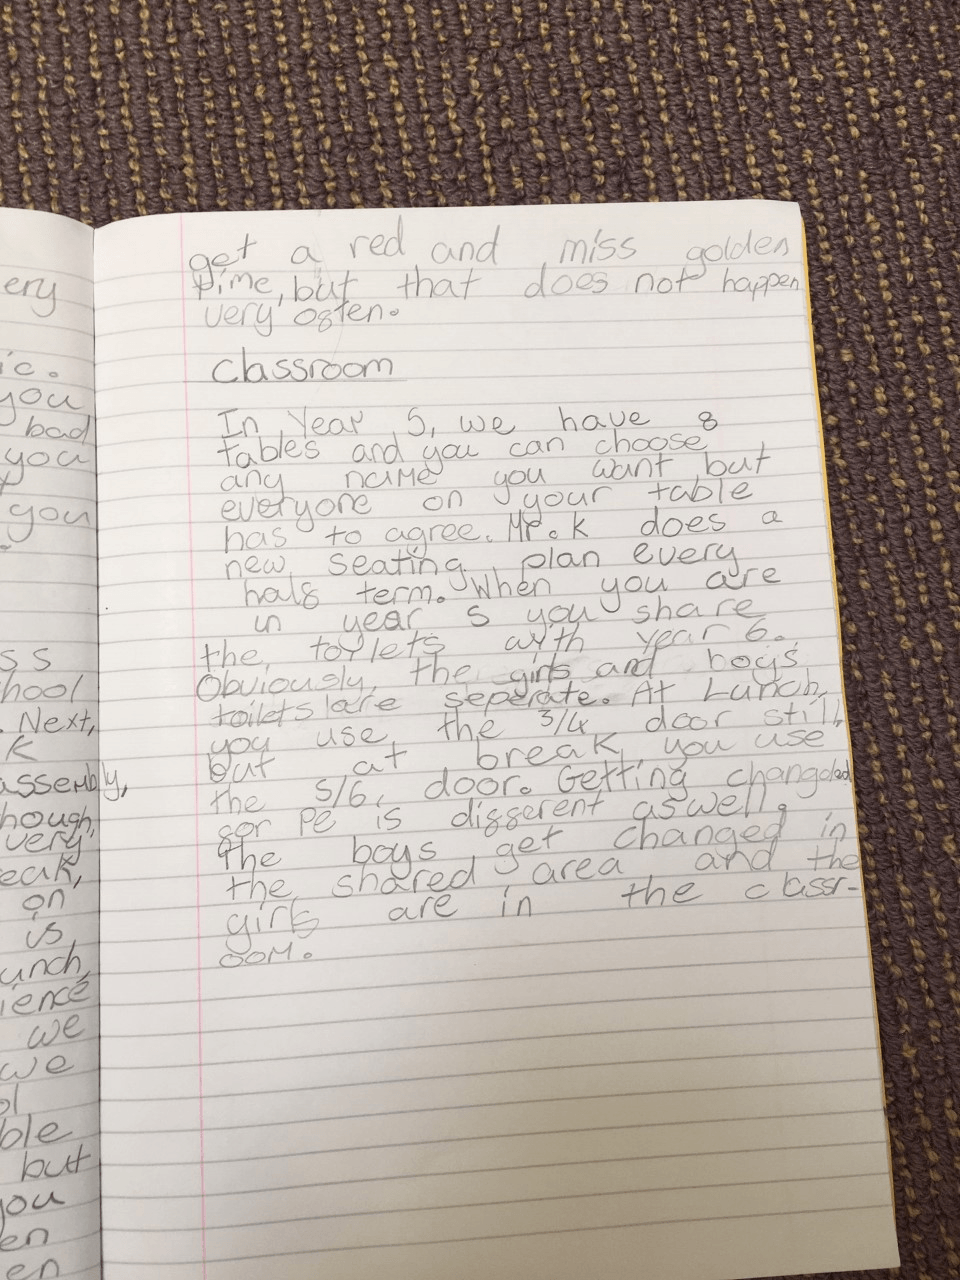 ery
ic.
you
bad
you
you
ss
hool
. Next,
K
assembly,
hough,
very
eak,
on
is
unch,
ience
we
we
ol
ble
but
you
en
en
get a red and miss golden
time, but that does not happen
very often.
classroom
In Year 5, we have 8
tables and you can choose
any name you want but
everyone on your table
has to agree. Mr. K does a
new seating plan every
half term. When you are
in year 5 you share
the toylets with year 6.
Obviously, the girls and boys
toilets are seperate. At Lunch,
you use the 3/4 door still,
but at break, you use
the 5/6, door. Getting changded
for PE is different aswell.
The boys get changed in
the shared area and the
girls are in the classr-
oom.